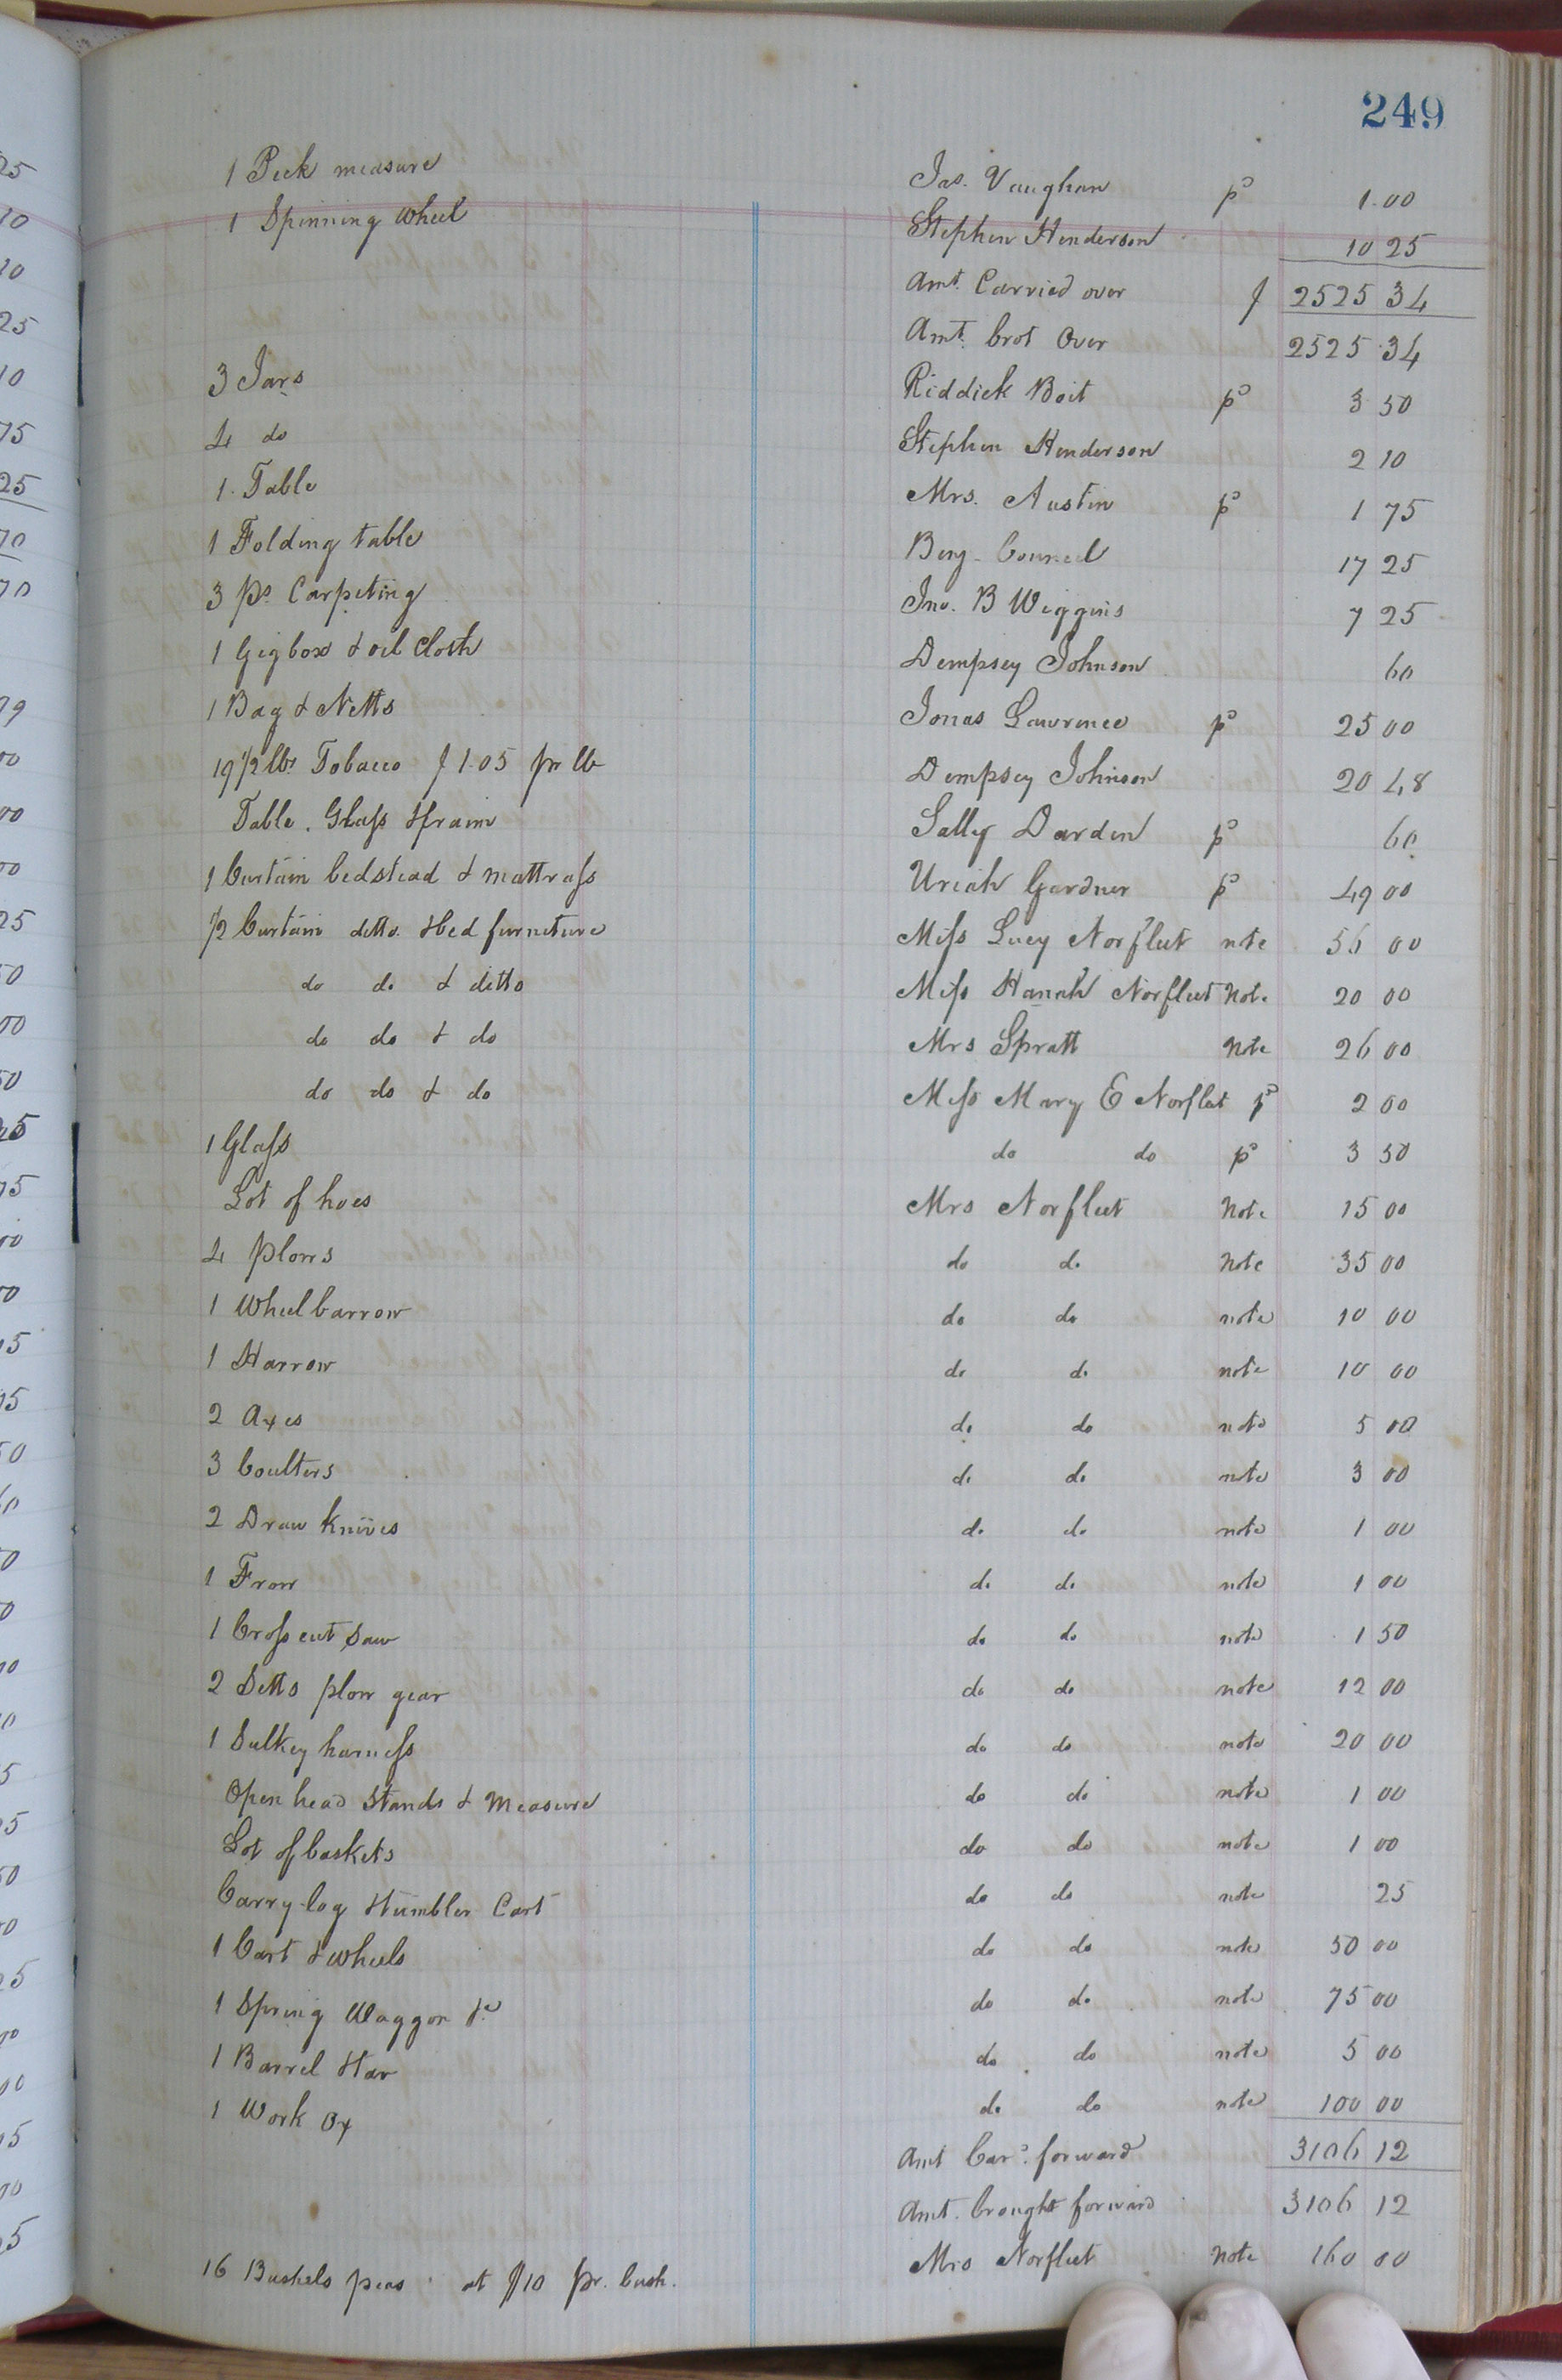 249
1 Peck measure Jas. Vaughan pd 1.00
1 Spinning Wheel Stephen Henderson 10 25
Amt. Carried over $ 2525 34
Amt. brot Over 2525 34
3 Jars Riddick Boit pd 3 50
4 do Stephen Henderson 2 10
1 Table Mrs. Austin pd 1 75
1 Folding table Benj. Council 17 25
3 ps Carpeting Jno. B Wiggins 7 25
1 Gigbox & oil Cloth Dempsey Johnson 60
1 Bag & Netts Jonas Lawrence pd 25 00
19 1/2 lbs Tobacco $1.05 pr lb Dempsey Johnson 20 48
Table. Glass & frame Sally Darden pd 60
1 Curtain bedstead & mattrass Uriah Gardner pd 49 00
1/2 Curtain ditto. & bed furneture Miss Lucy Norfleet note 56 00
do do & ditto Miss Hanah Norfleet Note 20 00
do do & do Mrs Spratt Note 26 00
do do & do Miss Mary E Norfleet pd 2 00
1 Glass do do pd 3 50
Lot of hoes Mrs Norfleet Note 15 00
4 plows do do Note 35 00
1 Wheelbarrow do do note 10 00
1 Harrow do do note 10 00
2 Axes do do note 5 00
3 Coulters do do note 3 00
2 Draw Knives do do note 1 00
1 Frow do do note 1 00
1 Cross cut Saw do do note 1 50
2 Setts plow gear do do note 12 00
1 Sulkey harness do do note 20 00
Open head Stands & Measure do do note 1 00
Lot of baskets do do note 1 00
Carry-log & tumbler Cart do do note 25
1 Cart & wheels do do note 50 00
1 Spring Waggon &c do do note 75 00
1 Barrel & tar do do note 5 00
1 Work Ox do do note 100 00
Amt Card. forward 3106 12
Amt. brought forward 3106 12
16 Bushels peas at $10 pr. bush. Mrs Norfleet Note 160 00